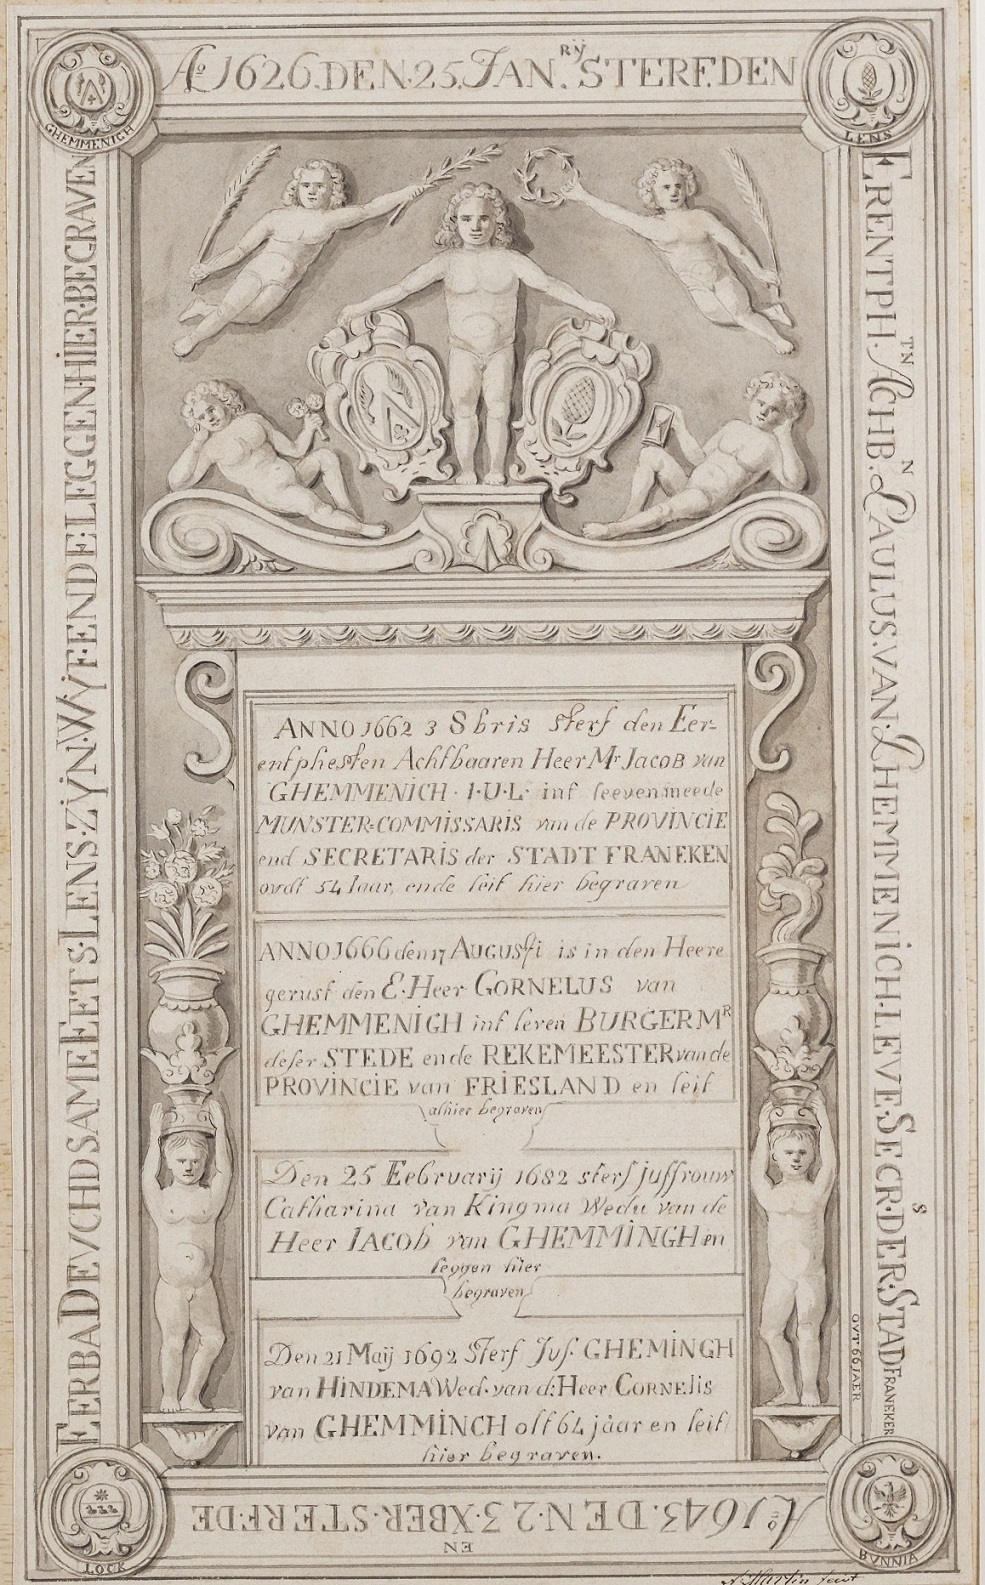 Ao 1626. DEN. 25. JAN.RIJ STERF. DEN
ERENTPH.TN ACHB.N PAULUS. VAN. GHEMMENICH. LEVE. SECR.S DER. STAD FRANEKER
OVT 66 JAER
Ao 1643. DEN. 23 XBER. STERF. DE
EN
EERBA DEVCHDSAME EETS. LENS. ZIJN. WIJF. ENDE. LEGGEN. HIER. BEGRAVEN
GHEMMENICH
LENS
ANNO 1662 3 8bris sterf den Eer-
entphesten Achtbaaren Heer Mr JACOB van
GHEMMENICH. I. U. L. int leeven meede
MUNSTER=COMMISSARIS van de PROVINCIE
end SECRETARIS der STADT FRANEKEN
oudt 54 Iaar, ende leit hier begraven
ANNO 1666 den 17 AUGUSti is in den Heere
gerust den E. Heer GORNELUS van
GHEMMENIGH int leven BURGERMR
deser STEDE ende REKEMEESTER van de
PROVINCIE van FRIESLAND en leit
alhier begraven
Den 25 Eebruarij 1682 sterf juffrouw
Catharina van Kingma Wedu van de
Heer IACOb van GHEMMINGH en
leggen hier
begraven
Den 21 Maij 1692 Sterf Juf. GHEMINGH
van HINDEMA Wed. van d: Heer CORNEIis
van GHEMMINCH olt 64 jaar en leit
hier begraven.
LOCK
BVNNIA
A. Martin fecit